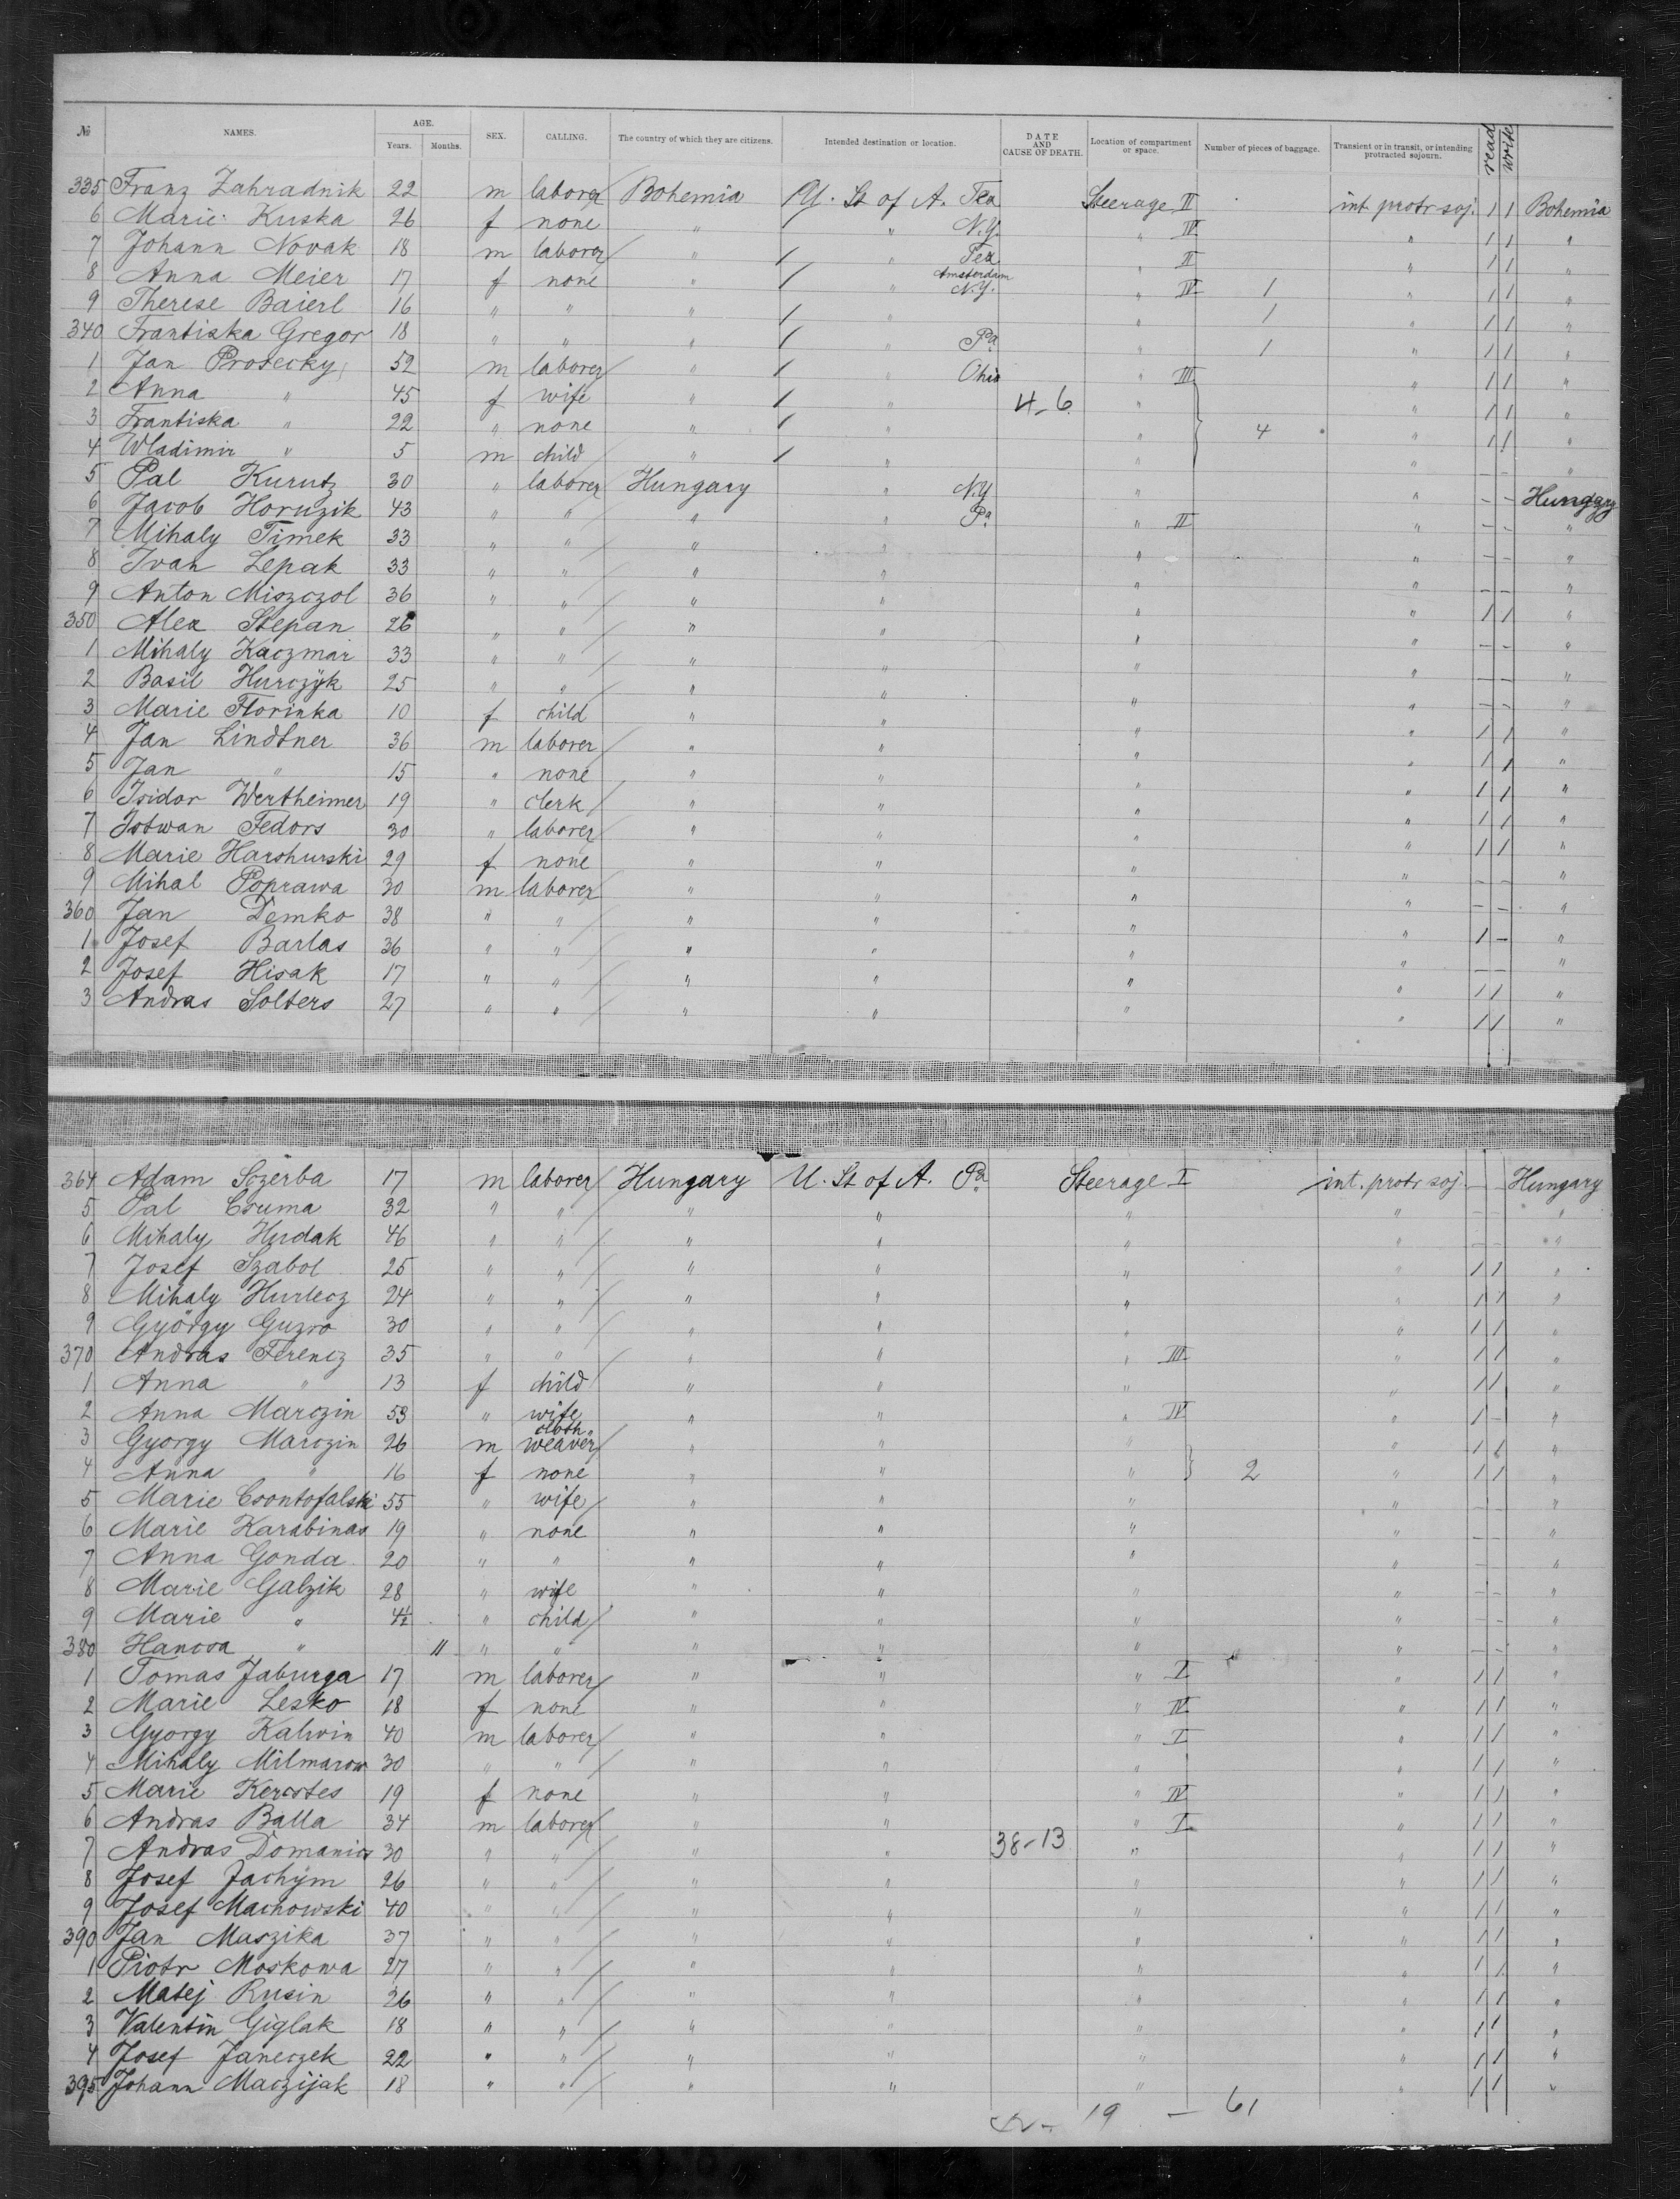 № NAMES. AGE. Years. Months. SEX. CALLING. The country of which they are citizens. Intended destination or location. DATE AND CAUSE OF DEATH. Location of compartment or space. Number of pieces of baggage. Transient or in transit, or intending protracted sojourn. read write
335 Franz Zahradnik 22 m laborer Bohemia U. St of A. Tex Steerage II int protr soj. 1 1 Bohemia
6 Marie Kuska 26 f none " " N.Y. " IV " 1 1 "
7 Johann Novak 18 m laborer " " Tex " II " 1 1 "
8 Anna Meier 17 f none " " Amsterdam N.Y. " IV 1 " 1 1 "
9 Therese Baierl 16 " " " " " 1 " 1 1 "
340 Frantiska Gregor 18 " " " " Pa " 1 " 1 1 "
1 Jan Prosecky 52 m laborer " " Ohio " III " 1 1 "
2 Anna " 45 f wife " " 4-6 " " 1 1 "
3 Frantiska " 22 " none " " " 4 " 1 1 "
4 Wladimir " 5 m child " " " " - - "
5 Pal Kurutz 30 " laborer Hungary " N.Y " " - - Hungary
6 Jacob Horuzik 43 " " " " Pa " II " - - "
7 Mihaly Timek 33 " " " " " " - - "
8 Ivan Lepak 33 " " " " " " - - "
9 Anton Miszczol 36 " " " " " " 1 1 "
350 Alex Stepan 26 " " " " " " - - "
1 Mihaly Kaczmar 33 " " " " " " - - "
2 Basil Hurczyk 25 " " " " " " - - "
3 Marie Florinka 10 f child " " " " 1 1 "
4 Jan Lindtner 36 m laborer " " " " 1 1 "
5 Jan " 15 " none " " " " 1 1 "
6 Isidor Wertheimer 19 " clerk " " " " 1 1 "
7 Istwan Fedors 30 " laborer " " " " 1 1 "
8 Marie Harshurski 29 f none " " " " - - "
9 Mihal Poprawa 30 m laborer " " " " - - "
360 Jan Demko 38 " " " " " " 1 - "
1 Josef Barlas 36 " " " " " " - - "
2 Josef Hisak 17 " " " " " " 1 1 "
3 Andras Solters 27 " " " " " " 1 1 "
364 Adam Sczerba 17 m laborer Hungary U. St of A. Pa Steerage I int. protr soj. - - Hungary
5 Pal Csuma 32 " " " " " " - - "
6 Mihaly Hudak 46 " " " " " " - - "
7 Josef Szabol 25 " " " " " " 1 1 "
8 Mihaly Hurlecz 24 " " " " " " 1 1 "
9 György Guzro 30 " " " " " " 1 1 "
370 Andras Ferencz 35 " " " " " III " 1 1 "
1 Anna " 13 f child " " " " 1 1 "
2 Anna Marczin 53 " wife " " " IV " 1 - "
3 Gyorgy Marczin 26 m cloth weaver " " " " 1 1 "
4 Anna " 16 f none " " " 2 " 1 1 "
5 Marie Csontofalski 55 " wife " " " " - - "
6 Marie Karabinas 19 " none " " " " - - "
7 Anna Gonda 20 " " " " " " - - "
8 Marie Galzik 28 " wife " " " " - - "
9 Marie " 4½ " child " " " " - - "
380 Hancsa " 11 " " " " " " - - "
1 Tomas Jaburga 17 m laborer " " " I " 1 1 "
2 Marie Lesko 18 f none " " " IV " 1 1 "
3 Gyorgy Kalwin 40 m laborer " " " I " 1 1 "
4 Mihaly Milmarow 30 " " " " " " 1 1 "
5 Marie Kerestes 19 f none " " " IV " 1 1 "
6 Andras Balla 34 m laborer " " " I " 1 1 "
7 Andras Domanics 30 " " " " 38-13 " " 1 1 "
8 Josef Jachym 26 " " " " " " 1 1 "
9 Josef Machowski 40 " " " " " " 1 1 "
390 Jan Muszika 37 " " " " " " 1 1 "
1 Piotr Moskowa 27 " " " " " " 1 1 "
2 Matej Rusin 26 " " " " " " 1 1 "
3 Valentin Giglak 18 " " " " " " 1 1 "
4 Josef Janeczek 22 " " " " " " 1 1 "
395 Johann Maczijak 18 " " " " " " 1 1 "
19 - 61